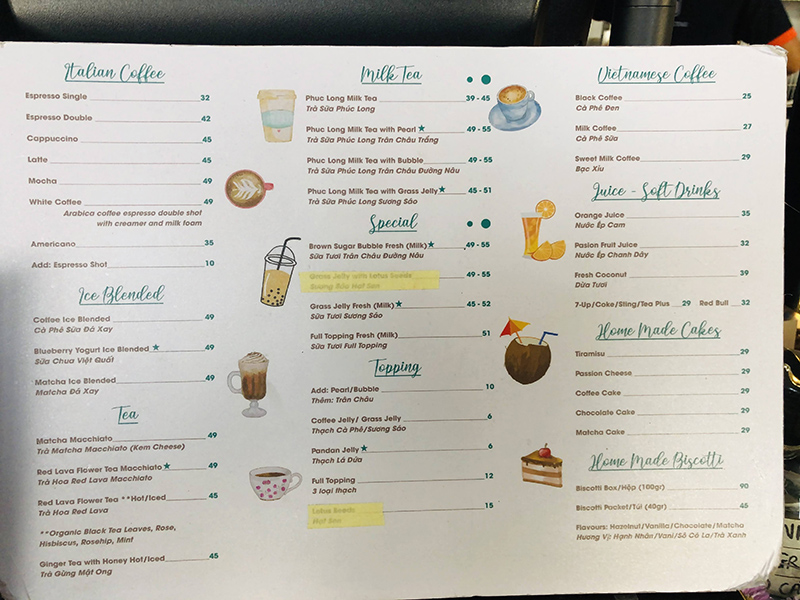 Italian Coffee
Espresso Single 32
Espresso Double 42
Cappuccino 45
Latte 45
Mocha 49
White Coffee 49
Arabica coffee espresso double shot
with creamer and milk foam
Americano 35
Add: Espresso Shot 10
Ice Blended
Coffee Ice Blended 49
Cà Phê Sữa Đá Xay
Blueberry Yogurt Ice Blended ★ 49
Sữa Chua Việt Quất
Matcha Ice Blended 49
Matcha Đá Xay
Tea
Matcha Macchiato 49
Trà Matcha Macchiato (Kem Cheese)
Red Lava Flower Tea Macchiato ★ 49
Trà Hoa Red Lava Macchiato
Red Lava Flower Tea **Hot/Iced 45
Trà Hoa Red Lava
**Organic Black Tea Leaves, Rose,
Hisbiscus, Rosehip, Mint
Ginger Tea with Honey Hot/Iced 45
Trà Gừng Mật Ong
Milk Tea
Phuc Long Milk Tea 39 - 45
Trà Sữa Phúc Long
Phuc Long Milk Tea with Pearl ★ 49 - 55
Trà Sữa Phúc Long Trân Châu Trắng
Phuc Long Milk Tea with Bubble 49 - 55
Trà Sữa Phúc Long Trân Châu Đường Nâu
Phuc Long Milk Tea with Grass Jelly ★ 45 - 51
Trà Sữa Phúc Long Sương Sáo
Special
Brown Sugar Bubble Fresh (Milk) ★ 49 - 55
Sữa Tươi Trân Châu Đường Nâu
Grass Jelly with Lotus Seeds 49 - 55
Sương Sáo Hạt Sen
Grass Jelly Fresh (Milk) ★ 45 - 52
Sữa Tươi Sương Sáo
Full Topping Fresh (Milk) 51
Sữa Tươi Full Topping
Topping
Add: Pearl/Bubble 10
Thêm: Trân Châu
Coffee Jelly/ Grass Jelly 6
Thạch Cà Phê/Sương Sáo
Pandan Jelly ★ 6
Thạch Lá Dứa
Full Topping 12
3 loại thạch
Lotus Seeds 15
Hạt Sen
Vietnamese Coffee
Black Coffee 25
Cà Phê Đen
Milk Coffee 27
Cà Phê Sữa
Sweet Milk Coffee 29
Bạc Xỉu
Juice - Soft Drinks
Orange Juice 35
Nước Ép Cam
Pasion Fruit Juice 32
Nước Ép Chanh Dây
Fresh Coconut 39
Dừa Tươi
7-Up/Coke/Sting/Tea Plus 29 Red Bull 32
Home Made Cakes
Tiramisu 29
Passion Cheese 29
Coffee Cake 29
Chocolate Cake 29
Matcha Cake 29
Home Made Biscotti
Biscotti Box/Hộp (100gr) 90
Biscotti Packet/Túi (40gr) 45
Flavours: Hazelnut/Vanilla/Chocolate/Matcha
Hương Vị: Hạnh Nhân/Vani/Sô Cô La/Trà Xanh